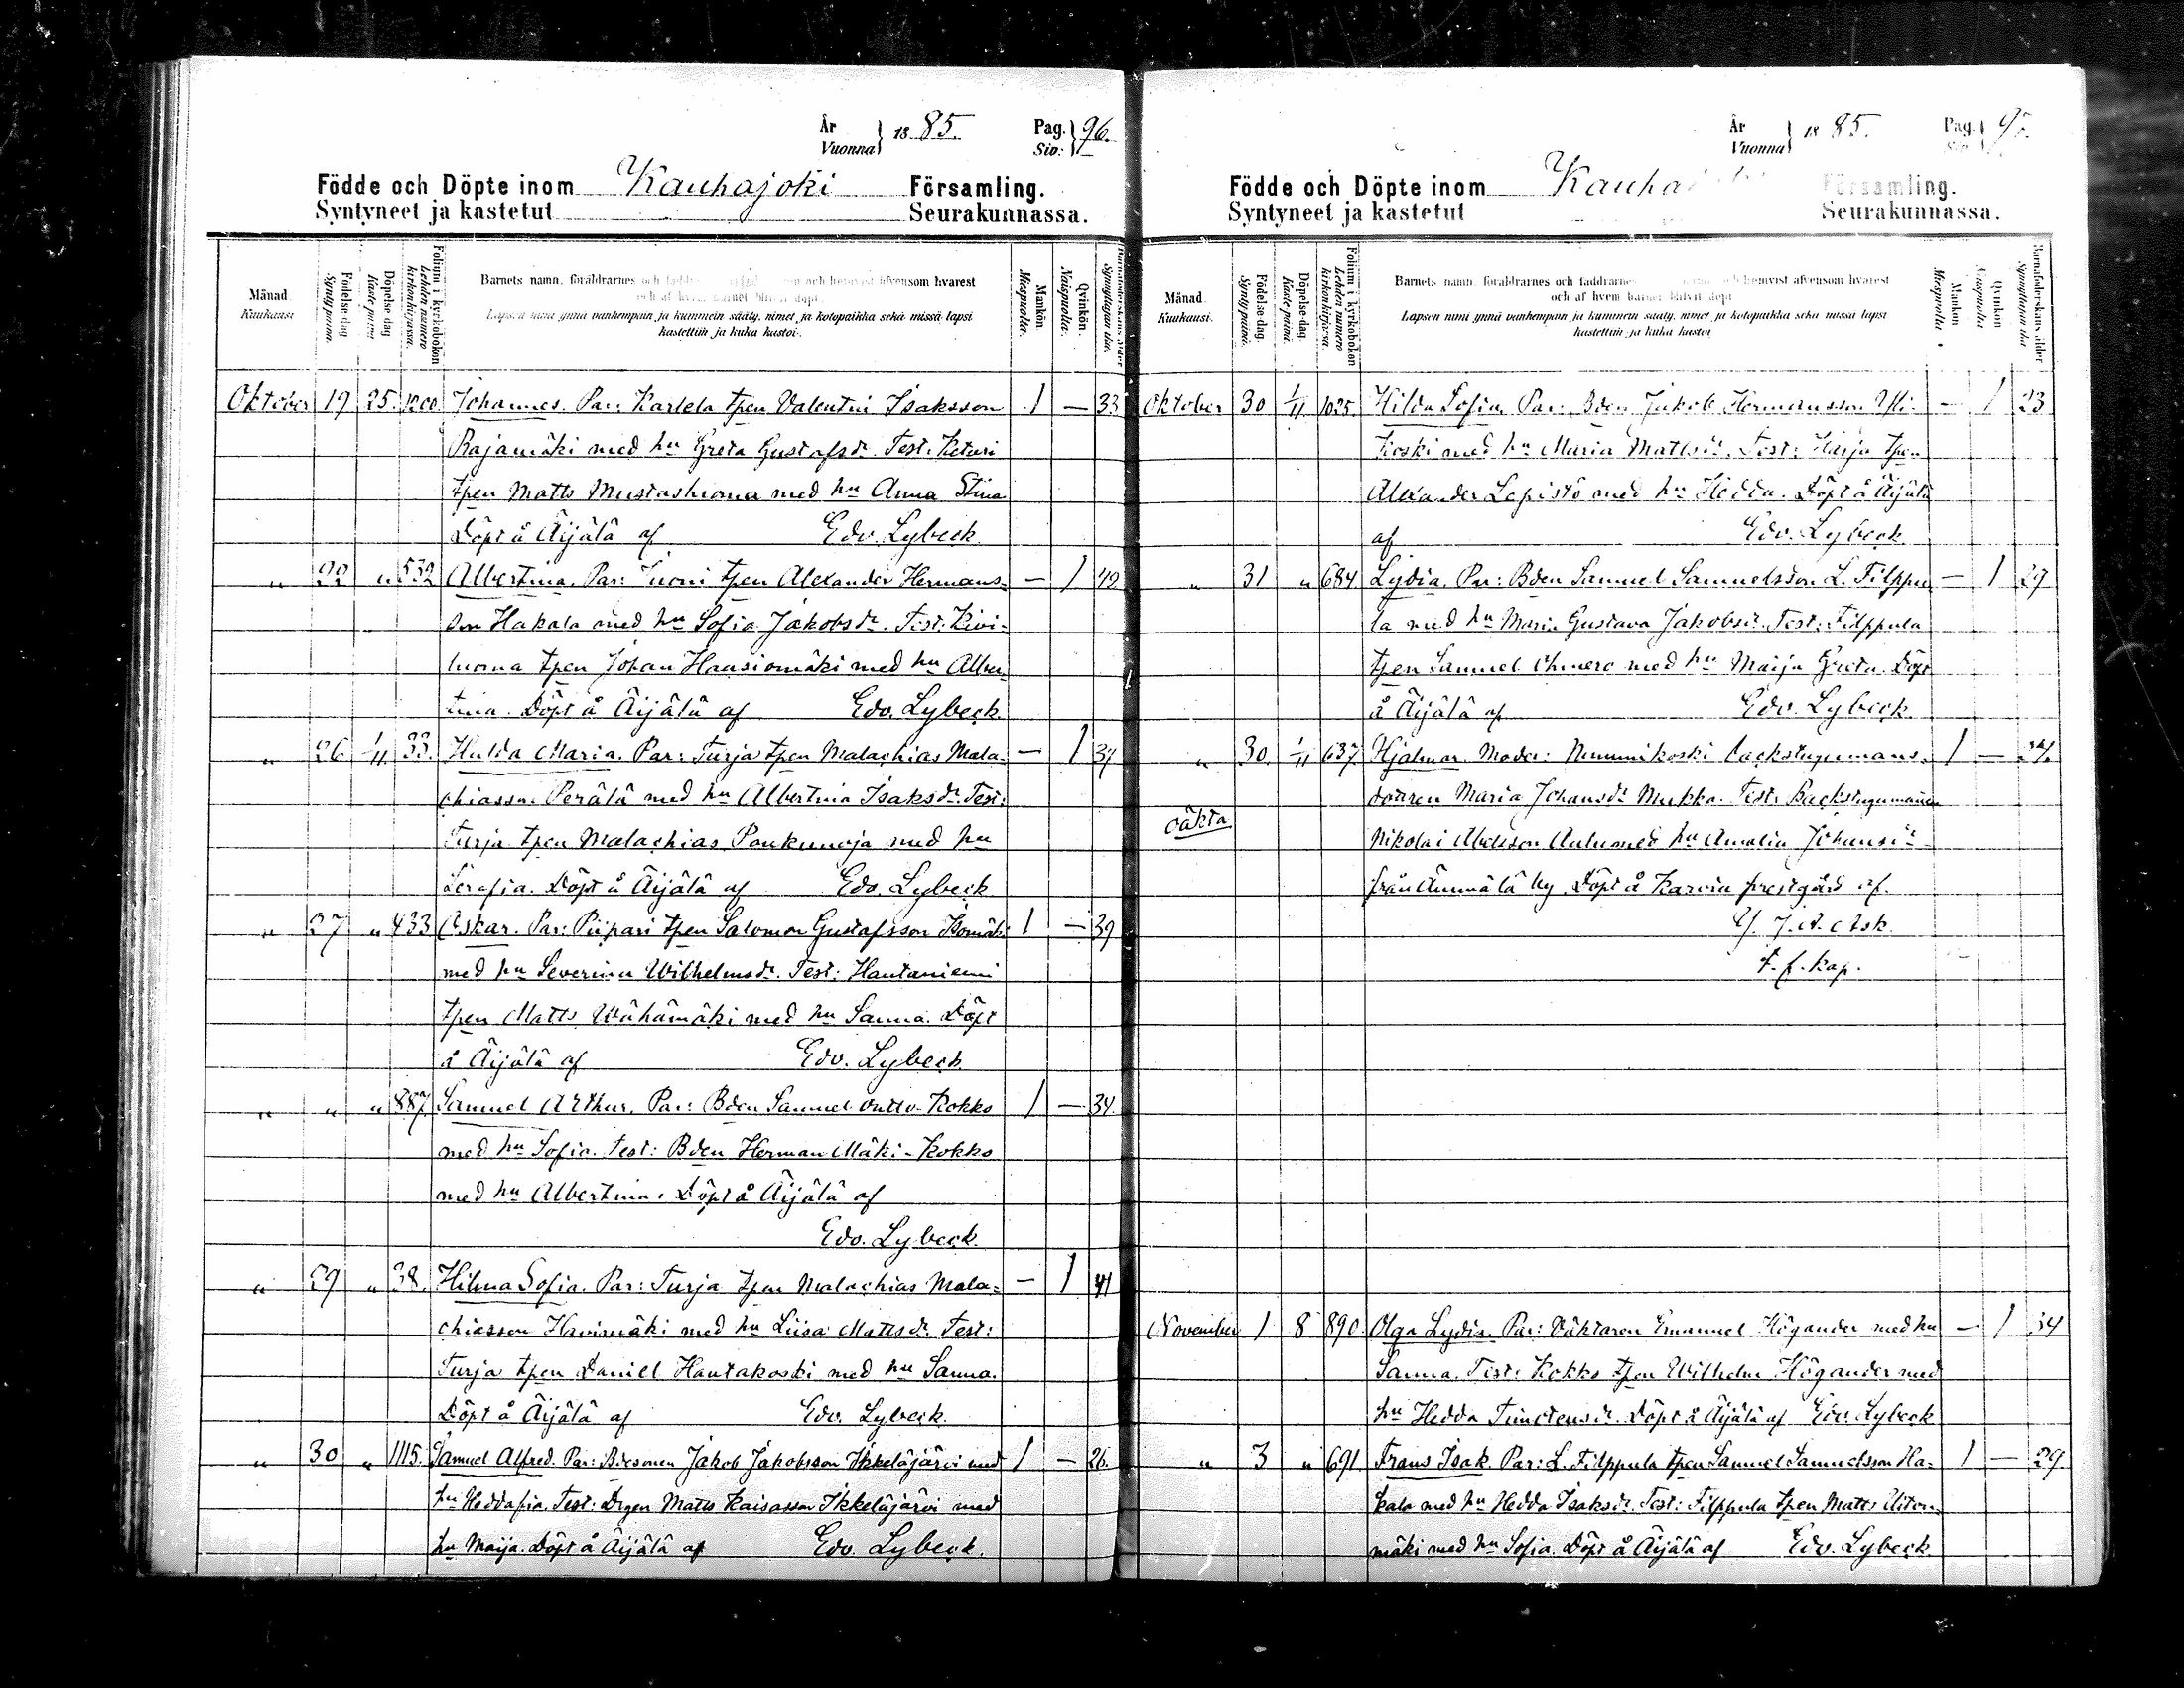 År
Vuonna } 1885. Pag. Siv: } 96.
Födde och Döpte inom Kauhajoki Församling.
Syntyneet ja kastetut Seurakunnassa.
Månad. Kuukausi
Födelse-dag. Syntypäivä.
Döpelse-dag. Kaste-päivä.
Folium i kyrkoboken Lehden numero kirkonkirjassa.
Barnets namn, föräldrarnes och hemvist äfvensom hvarest
och af hvem barnet blifvit döpt
Lapsen nimi ynnä vanhempain ja kummein sääty, nimet ja kotopaikka sekä missä lapsi
kastettiin ja kuka kastoi.
Mankön. Miespuolia.
Qvinkön. Naispuolia.
Barnaföderskans ålder Synnyttäjän ikä.
Oktober 19 25. 1200 Johannes. Par: Karlela tpen Valentin Isaksson 1 — 33
Rajamäki med hu Greta Gustafsdr. Test: Keturi
tpen Matts Mustashioma med hu Anna Stina
Döpt å Äijälä af Edv. Lybeck.
" 22 " 532 Albertina. Par: Luomi tpen Alexander Hermans- — 1 42
son Hakala med hu Sofia Jakobsdr. Test: Kivi-
luoma tpen Johan Hausiomäki med hu Alber-
tina. Döpt å Äijälä af Edv. Lybeck.
" 26 1/11 33. Hulda Maria. Par: Turja tpen Malachias Mala- — 1 34
chiasson Perälä med hu Albertina Isaksdr. Test:
Turja tpen Malachias Paukunoja med hu
Serafia. Döpt å Äijälä af Edv. Lybeck
" 27 " 433 Oskar. Par: Piipari tpen Salomon Gustafsson Isomäki 1 — 39
med hu Severina Wilhelmsdr. Test: Hautaniemi
tpen Matts Wähämäki med hu Sanna. Döpt
å Äijälä af Edv. Lybeck.
" " " 887 Samuel Arthur. Par: Bden Samuel Outto-Kokko 1 — 34.
med hu Sofia. Test: Bden Herman Mäki-Kokko
med hu Albertina. Döpt å Äijälä af
Edv. Lybeck.
" 29 " 38. Hilma Sofia. Par: Turja tpen Malachias Mala- — 1 41
chiasson Havismäki med hu Liisa Mattsdr. Test:
Turja tpen Daniel Hautakoski med hu Sanna.
Döpt å Äijälä af Edv. Lybeck.
" 30 " 1115. Samuel Alfred. Par: Bdesonen Jakob Jakobsson Ikkeläjärvi med 1 — 26.
hu Heddafia. Test: Drgen Matts Kaisasson Ikkeläjärvi med
hu Maija. Döpt å Äijälä af Edv. Lybeck.
År
Vuonna } 1885. Pag. Siv.
Födde och Döpte inom Församling.
Syntyneet ja kastetut Seurakunnassa.
Månad. Kuukausi.
Födelse-dag. Syntypäivä.
Döpelse-dag. Kaste-päivä.
Folium i kyrkoboken Lehden numero kirkonkirjassa.
Barnets namn, föräldrarnes och faddrarnes hemvist äfvensom hvarest
och af hvem barnet blifvit döpt
Lapsen nimi ynnä vanhempain ja kummein sääty, nimet ja kotopaikka sekä missä lapsi
kastettiin ja kuka kastoi
Mankön Miespuolia
Qvinkön Naispuolia
Barnaföderskans ålder Synnyttäjän ikä
Oktober 30 1/11 1025 Hilda Sofia. Par: Bden Jakob Hermansson Yli- — 1 23
koski med hu Maria Mattsdr. Test: Harja tpen
Alexander Lepistö med hu Hedda. Döpt å Äijälä
af Edv. Lybeck.
" 31 " 684 Lydia. Par: Bden Samuel Samuelsson L. Filppu- — 1 27
la med hu Maria Gustava Jakobsdr. Test: Filppula
tpen Samuel med hu Maija Greta. Döpt
å Äijälä af Edv. Lybeck.
" 30. 1/11 637. Hjalmar. Moder: Nummikoski backstugumans- 1 — 24.
dottren Maria Johansdr Mukka. Test: Backstugumannen
oäkta
Nikolai Abelsson med hu Amalia Johansdr
från Ämmälä by. Döpt å Karvia prestgård af.
J. A. Ask.
t. f. kap.
November 1 8 890 Olga Lydia. Par: Väktaren Emanuel Högander med hu — 1 34
Sanna. Test: Kokko tpen Wilhelm Högander med
hu Hedda. Döpt å Äijälä af Edv. Lybeck
" 3 " 691. Frans Isak. Par: L. Filppula tpen Samuel Samuelsson Ha- 1 — 29.
kala med hu Hedda Isaksdr. Test: Filppula tpen Matts
mäki med hu Sofia. Döpt å Äijälä af Edv. Lybeck.